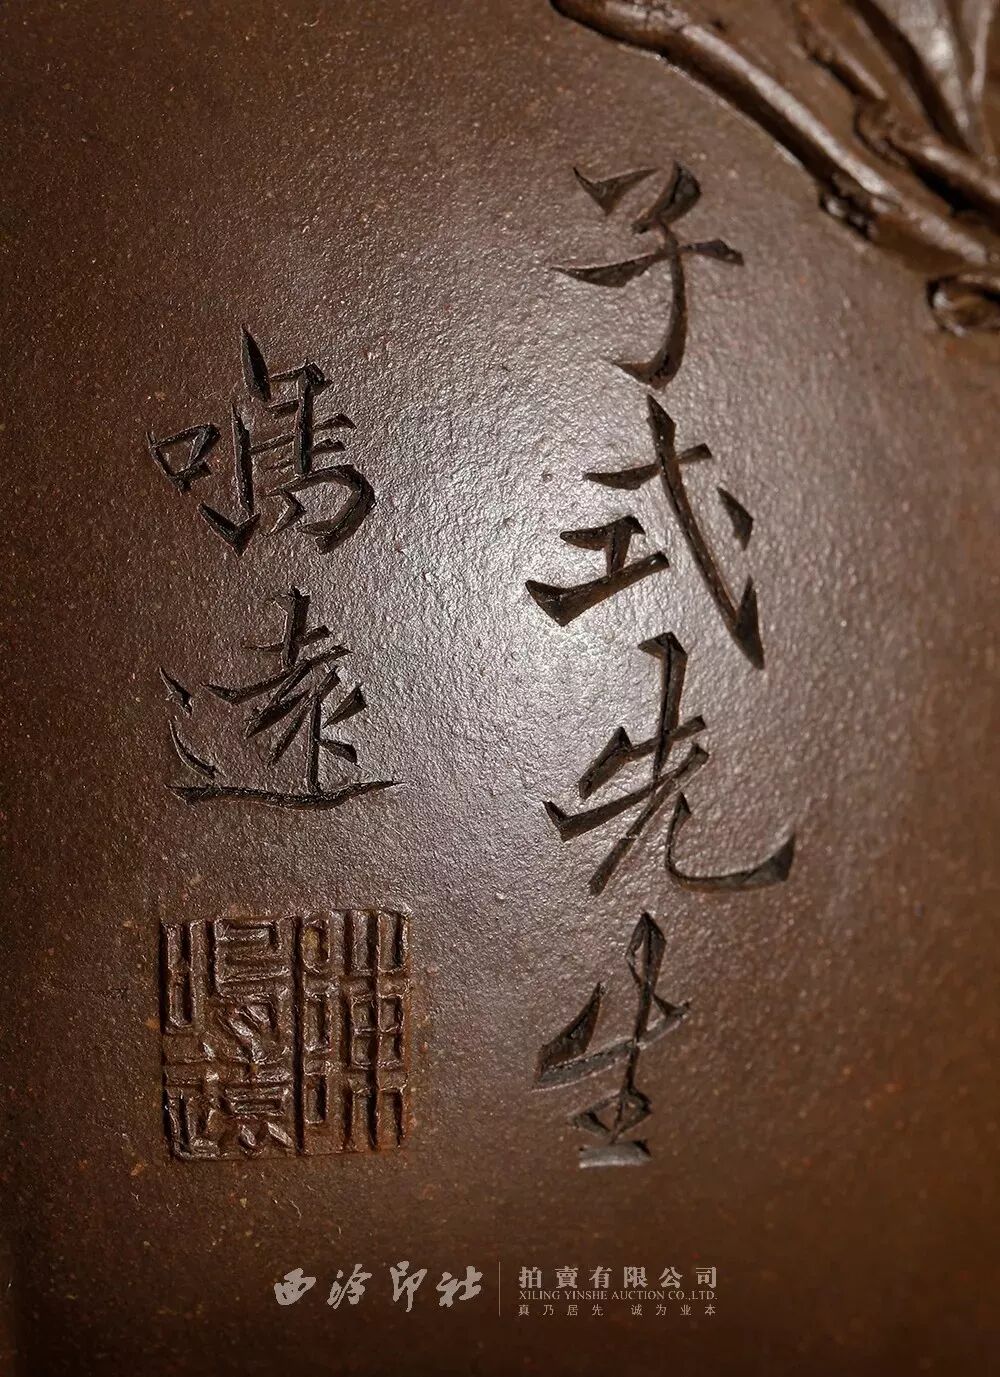 子式先生
鳴遠
鳴遠
西泠印社
拍賣有限公司
XILING YINSHE AUCTION CO.,LTD.
真乃居先 诚为业本